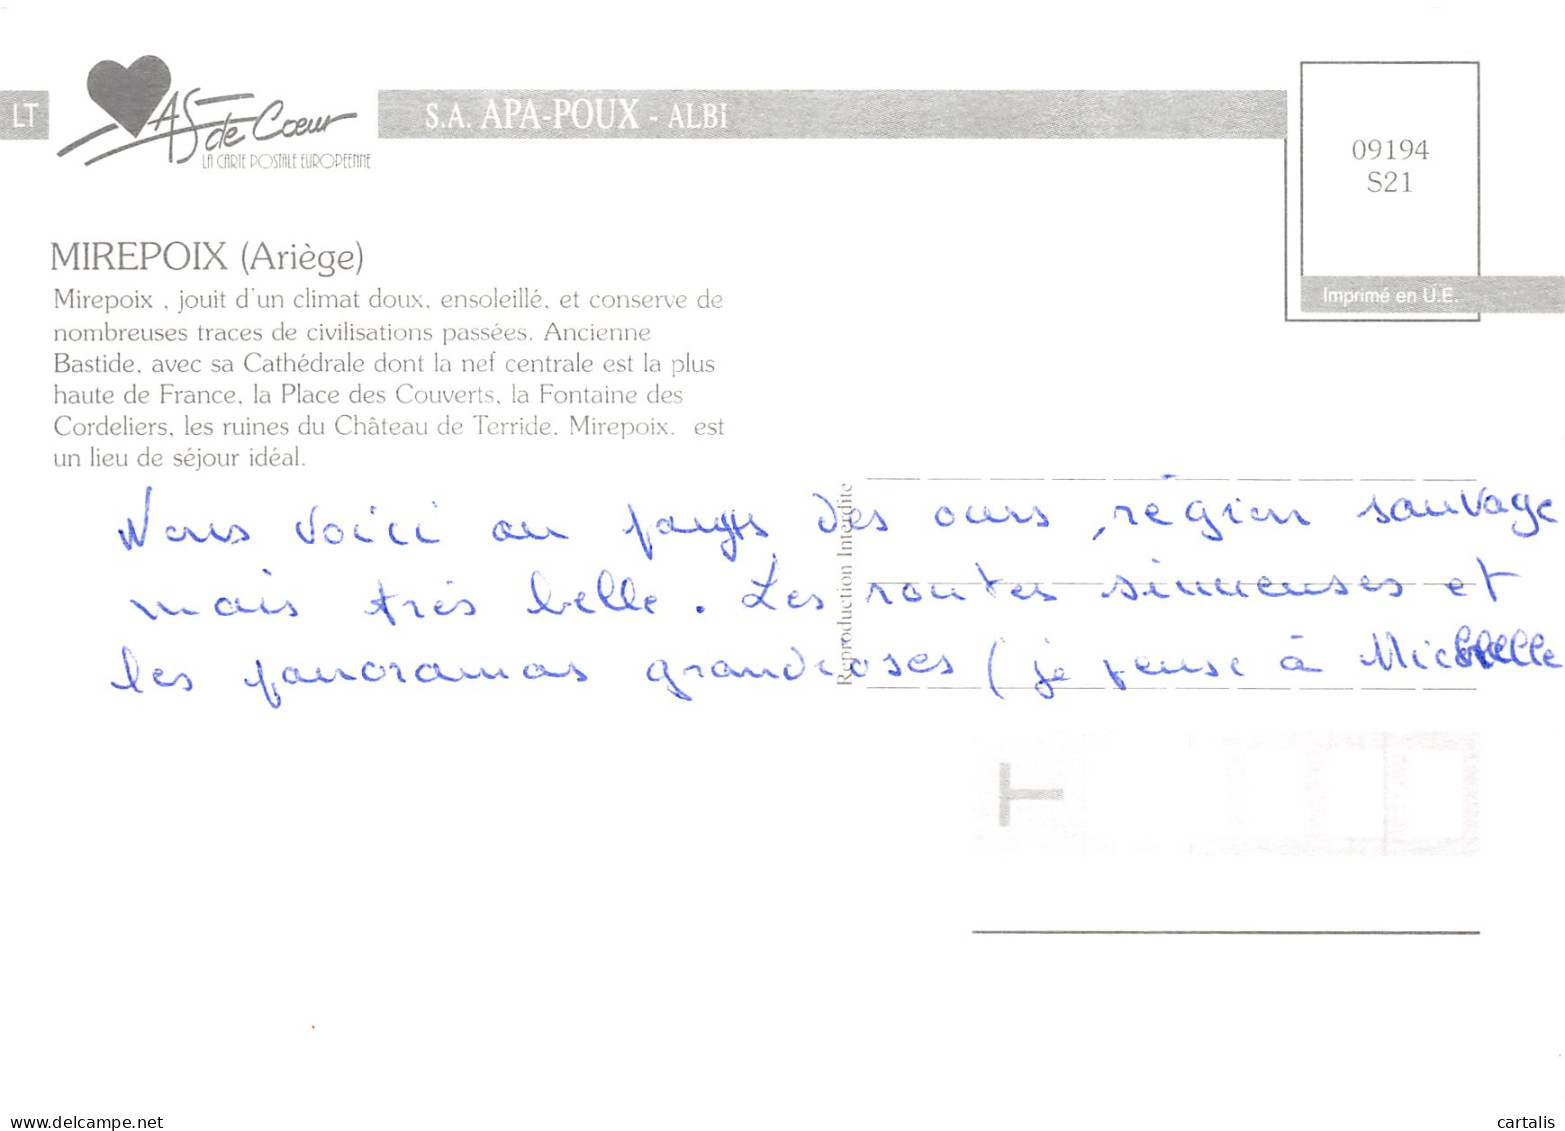 LT
AS de Cœur
LA CARTE POSTALE EUROPEENNE
S.A. APA-POUX - ALBI
09194
S21
Imprimé en U.E.
MIREPOIX (Ariège)
Mirepoix , jouit d'un climat doux, ensoleillé, et conserve de
nombreuses traces de civilisations passées. Ancienne
Bastide, avec sa Cathédrale dont la nef centrale est la plus
haute de France, la Place des Couverts, la Fontaine des
Cordeliers, les ruines du Château de Terride, Mirepoix, est
un lieu de séjour idéal.
Reproduction Interdite
Nous voici au pays des ours, région sauvage
mais très belle. Les routes sinueuses et
les panoramas grandioses (je pense à
delcampe.net
cartalis